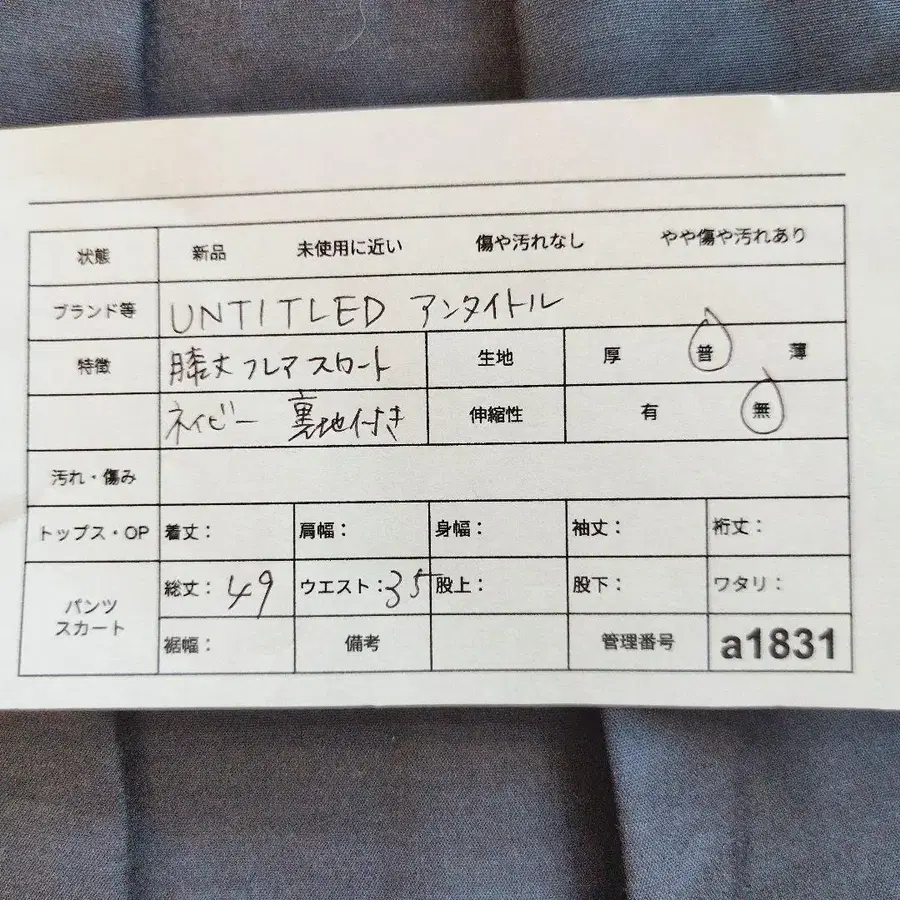 状態 新品 未使用に近い 傷や汚れなし やや傷や汚れあり
ブランド等 UNTITLED アンタイトル
特徴 膝丈フレアスカート 生地 厚 普 薄
ネイビー 裏地付き 伸縮性 有 無
汚れ・傷み
トップス・OP 着丈： 肩幅： 身幅： 袖丈： 裄丈：
パンツ スカート 総丈：49 ウエスト：35 股上： 股下： ワタリ：
裾幅： 備考 管理番号 a1831